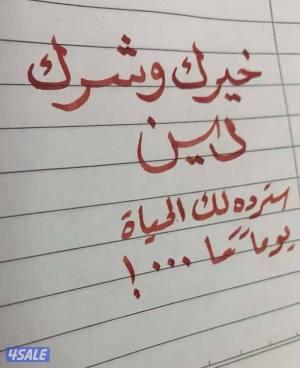 خيرك وشرك
دين
ستردہ لك الحياة
يوماً ما ...!
4SALE